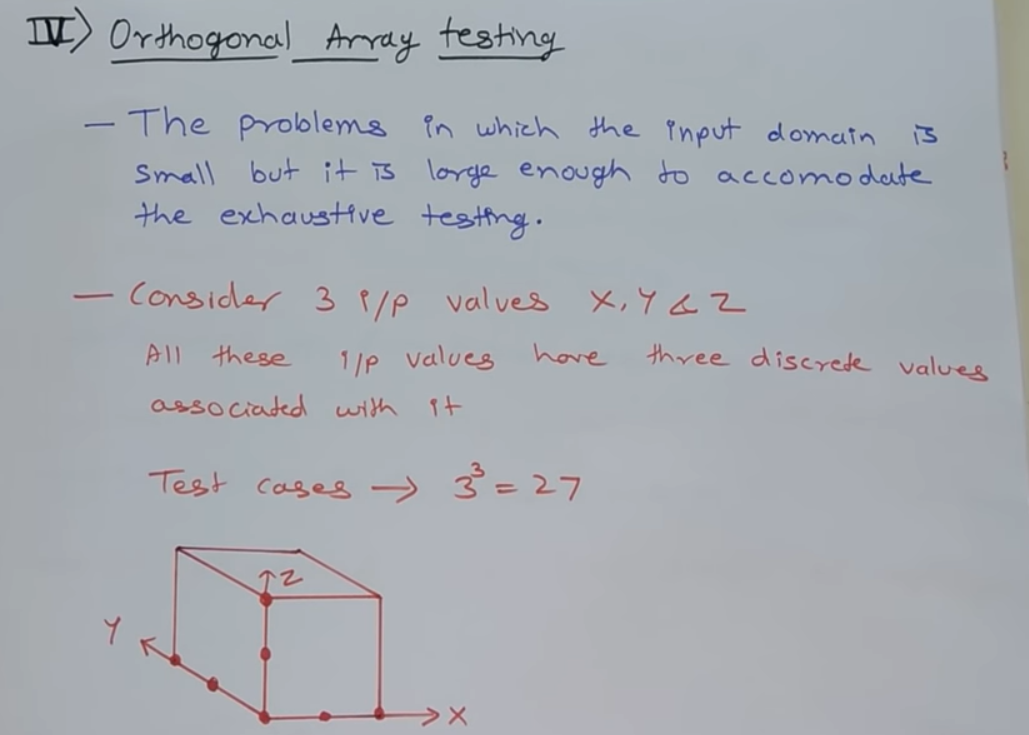 IV) Orthogonal Array testing
– The problems in which the input domain is
small but it is large enough to accomodate
the exhaustive testing.
– Consider 3 i/p values X, Y & Z
All these i/p values have three discrete values
associated with it
Test cases → 3³ = 27
Z
Y
X